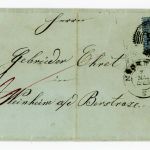 Herren
Gebrüder Ehret
Weinheim a/d Bergstrasse.